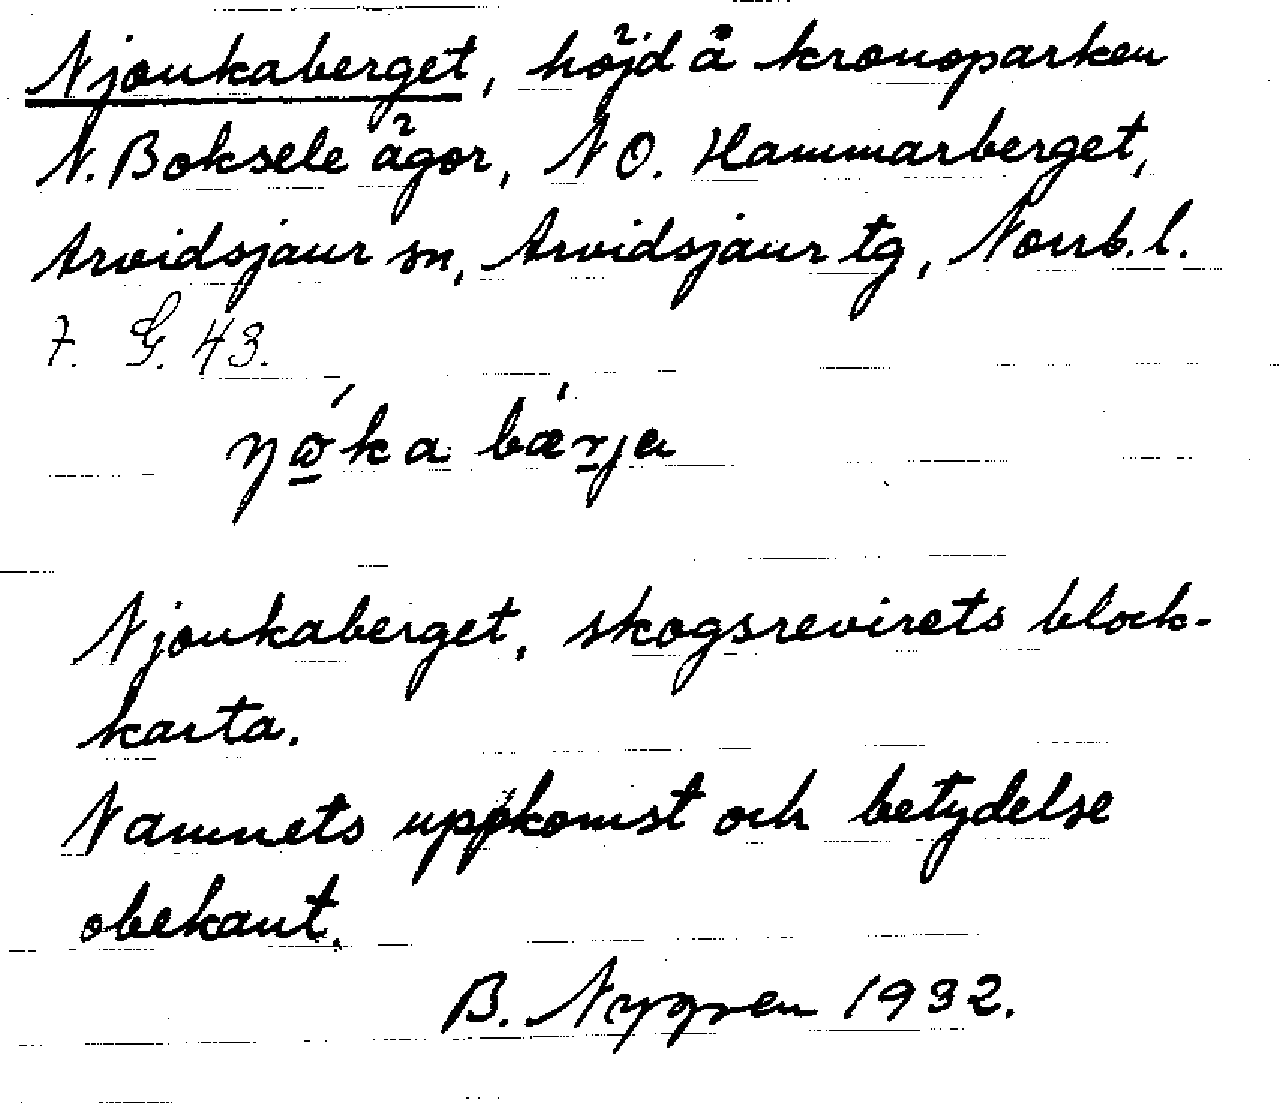 Njoukaberget, höjd å kronoparken
N. Boksele ägor, NO. Hammarberget,
Arvidsjaur sn, Arvidsjaur tg, Norrb. l.
7. G. 43.
bærja
Njoukaberget, skogsrevirets block-
karta.
Namnets uppkomst och betydelse
obekant.
B. Nygren 1932.